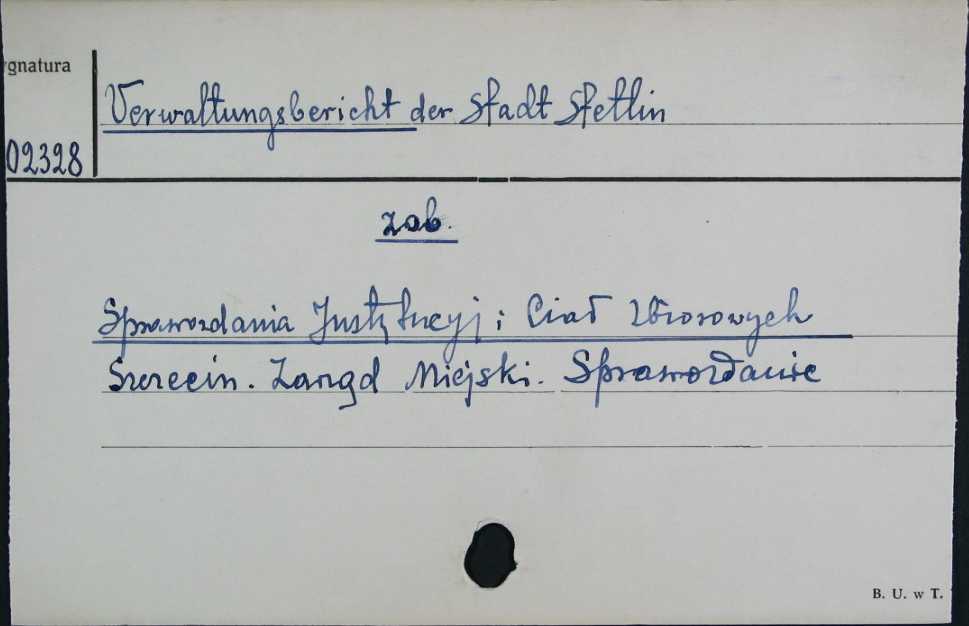 ygnatura
Verwaltungsbericht der Stadt Stettin
02328
zob.
Sprawozdania Instytucyj i Ciał Zbiorowych
Szczecin. Zarząd Miejski. Sprawozdanie
B. U. w T.